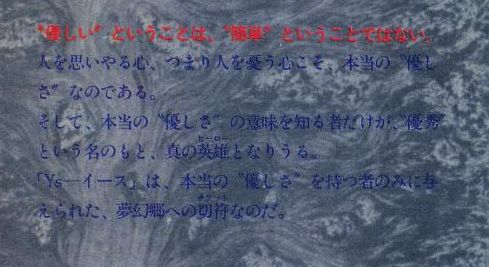 〝優しい〟ということは、〝簡単〟ということではない。
人を思いやる心、つまり人を憂う心こそ、本当の〝優し
さ〟なのである。
そして、本当の〝優しさ〟の意味を知る者だけが、〝優秀〟
という名のもと、真の英雄となりうる。
「Ys―イース」は、本当の〝優しさ〟を持つ者のみに与
えられた、夢幻郷への切符なのだ。